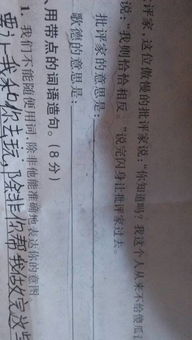 评家，这位傲慢的批评家说："你知道吗？我这个人从来不给傻瓜
说："我则恰恰相反。"说完闪身让批评家过去。
批评家的意思是：
歌德的意思是：
用带点的词语造句。（8分）
1. 我们不能随便用词，除非他能准确地表达你的意图
要让我不你去玩，除非你帮我做完这